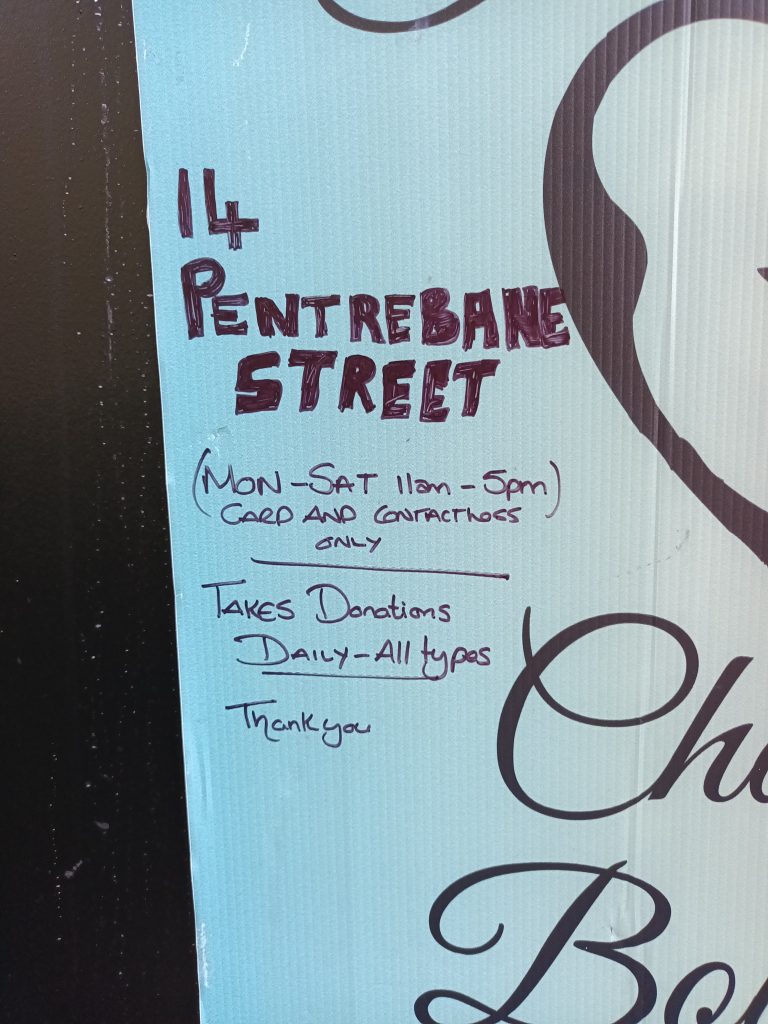 14
PENTREBANE
STREET
(MON - SAT 11am - 5pm)
CARD AND CONTACTLESS
ONLY
TAKES Donations
DAILY - All types
Thank you
Ch
Bo